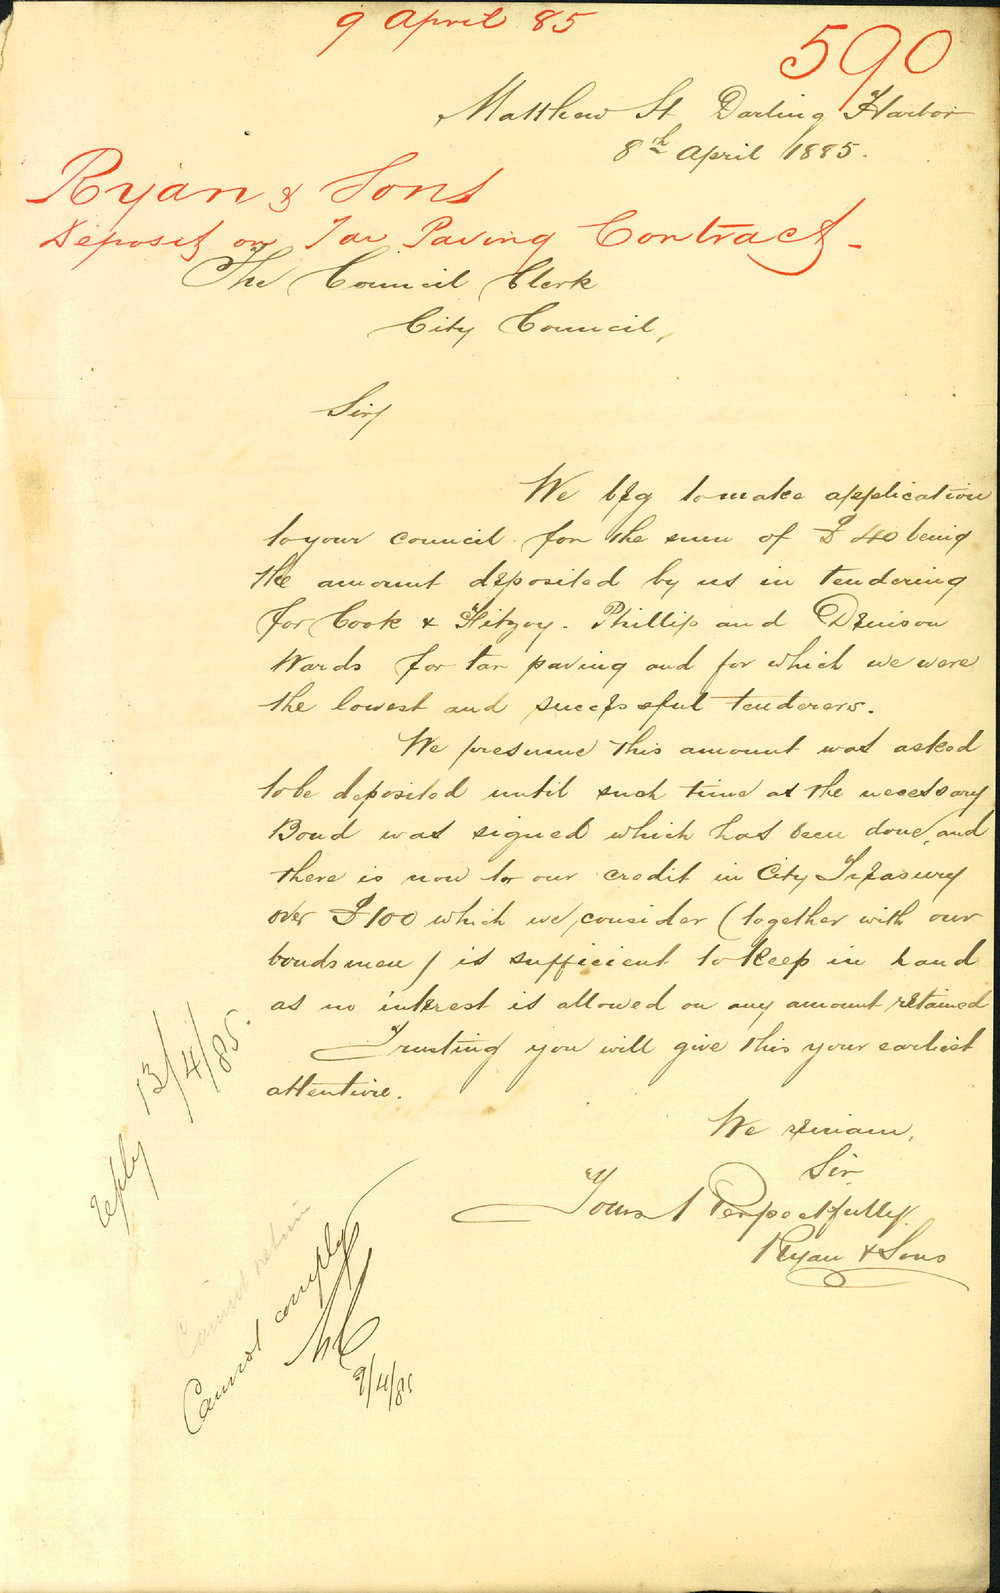 9 April 85
590
Matthew St Darling Harbor
8th April 1885.
Ryan & Sons
Deposit on Tar Paving Contract -
The Council Clerk
City Council,
Sir/
We beg to make application
to your council for the sum of £40 being
the amount deposited by us in tendering
for Cook & Fitzroy. Phillip and Denison
Wards for tar paving and for which we were
the lowest and successful tenderers.
We presume this amount was asked
to be deposited until such time as the necessary
Bond was signed which has been done, and
there is now to our credit in City Treasury
over £100 which we consider (together with our
bondsmen) is sufficient to keep in hand
as no interest is allowed on any amount retained
Trusting you will give this your earliest
attention.
We remain,
Sir
Yours Respectfully
Ryan & Sons
reply 13/4/85.
Cannot return
Cannot comply
9/4/85